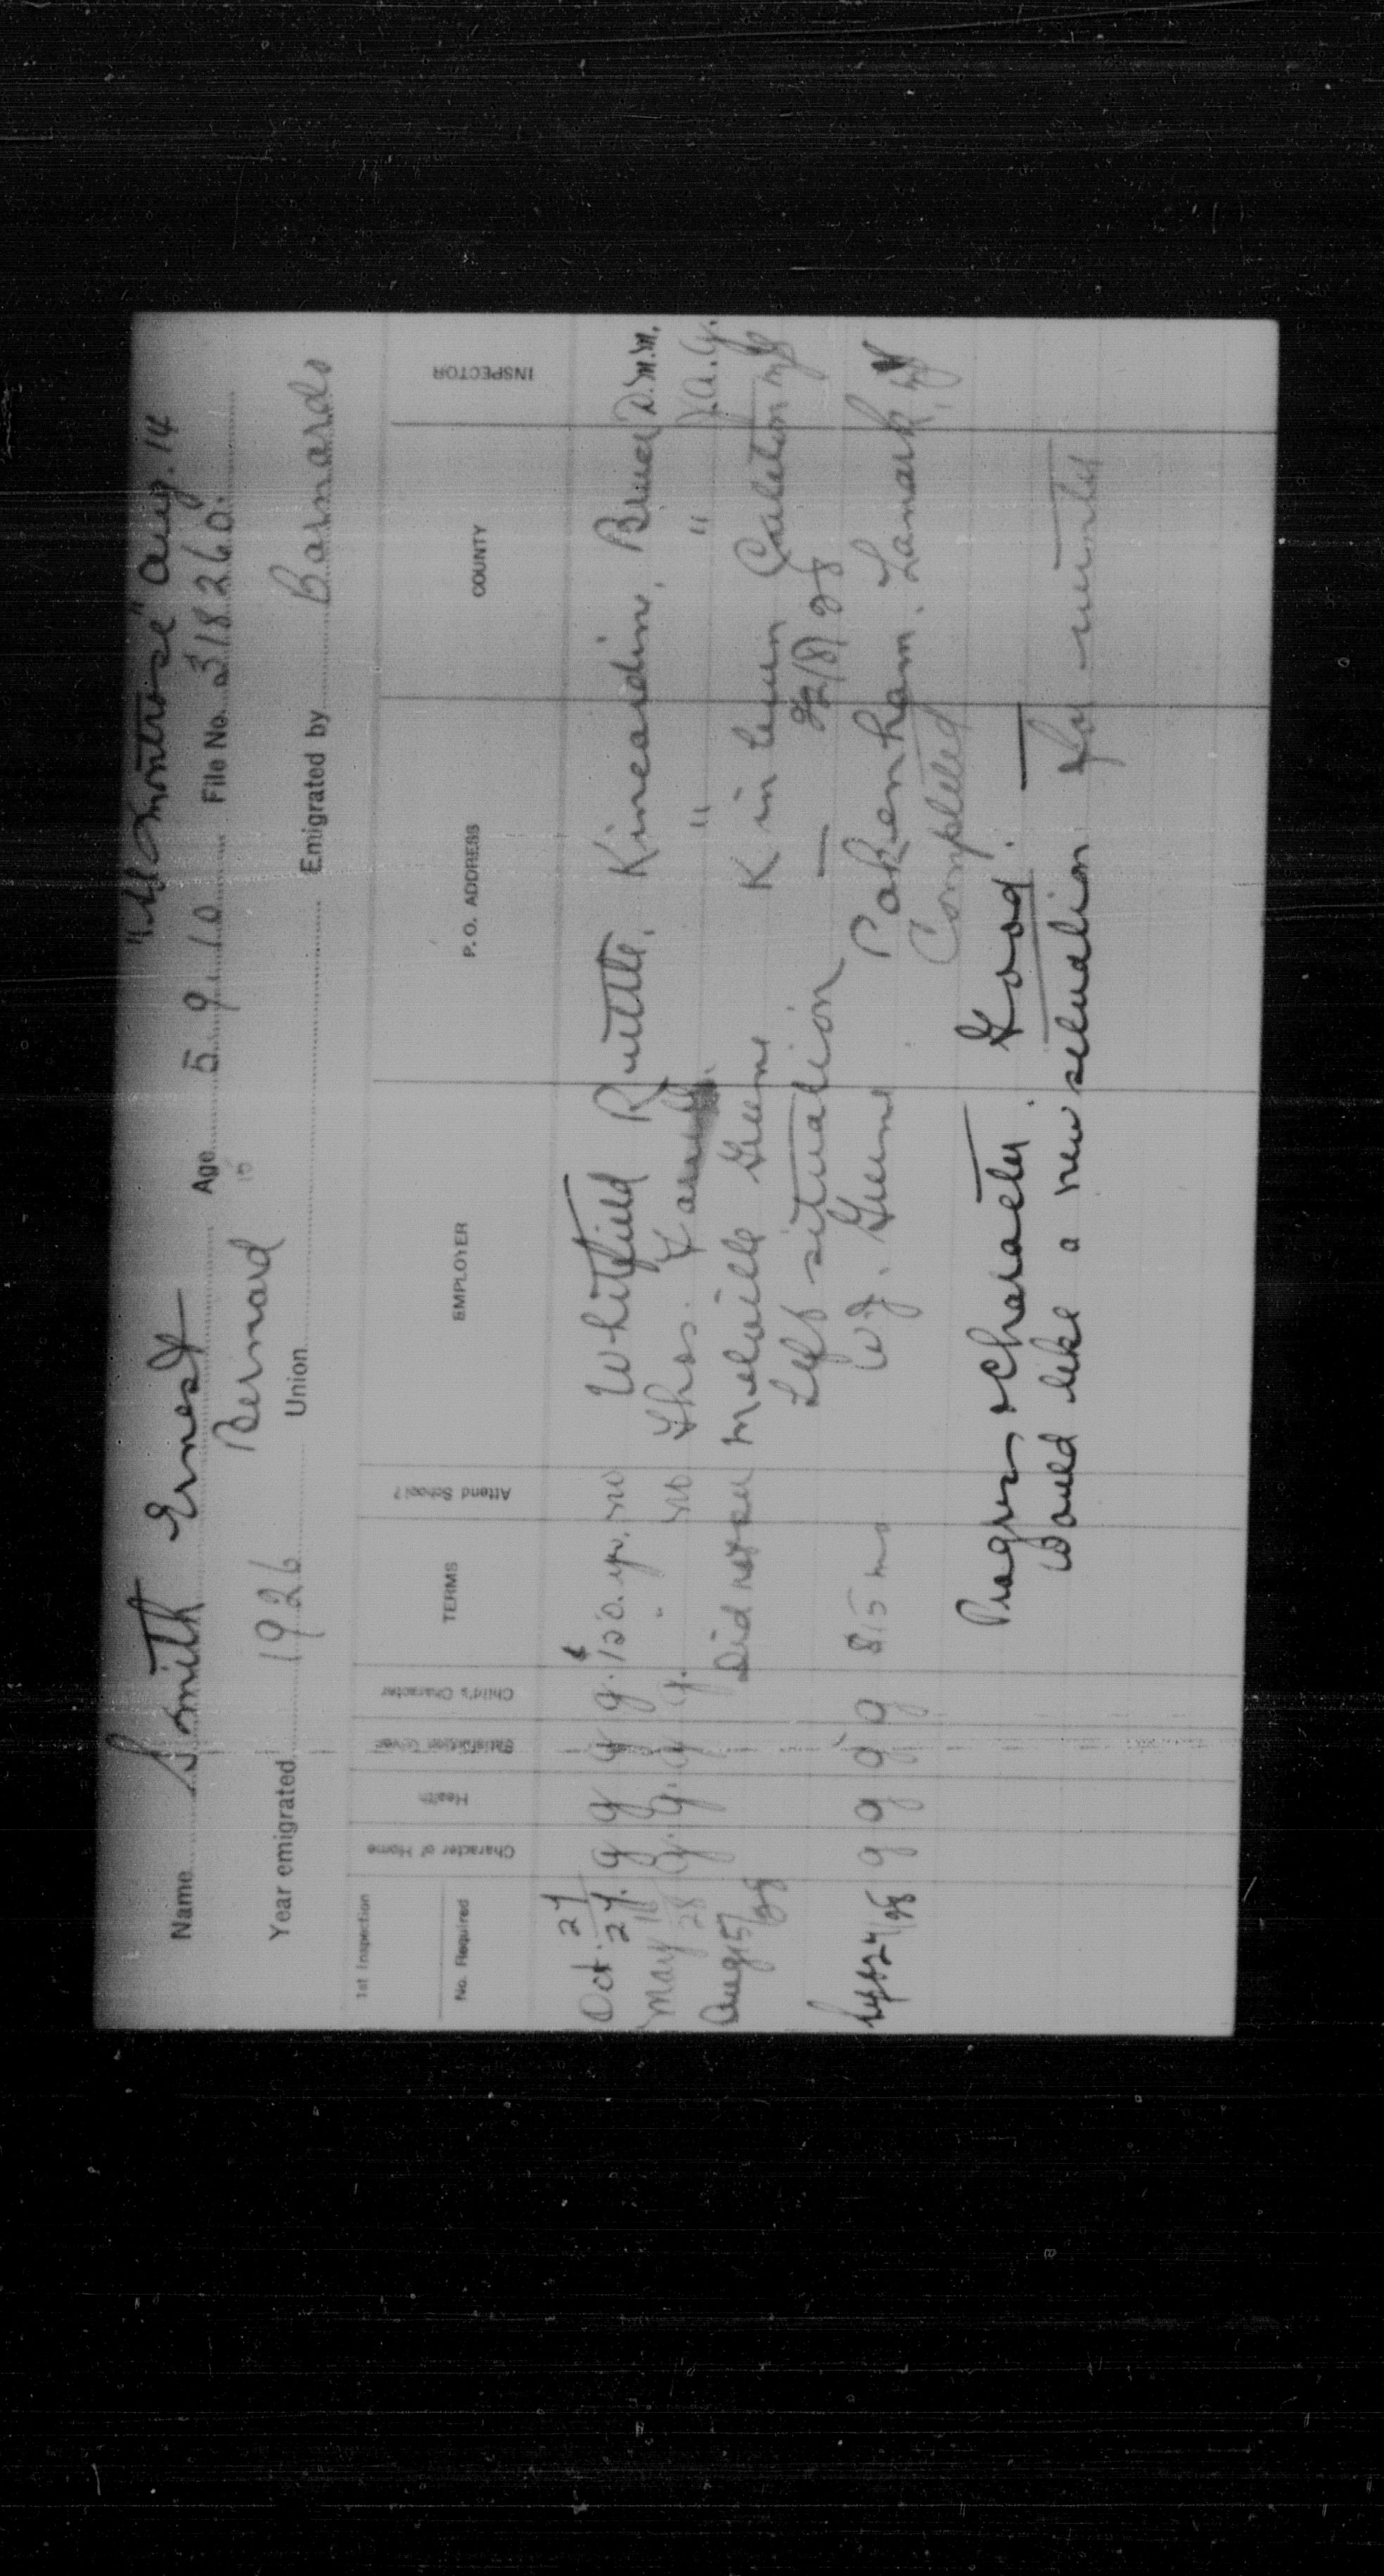 "Montrose" Aug. 14
Name Smith Ernest Age 5.9.10 File No. 318260.
Bernard 15
Year emigrated 1926 Union Emigrated by Barnardo
1st Inspection
No. Required Character of Home Health Satisfaction Given Child's Character TERMS Attend School? EMPLOYER P. O. ADDRESS COUNTY INSPECTOR
Oct. 27/27. g g g g. 120. yr. no Whitfield Ruttle, Kincardin, Bruce D.M.M.
May 16 28 g. g. g g. " no Thos. " " J.A.G.
Aug 15/28 Did not see Melville Greene Kinburn Carleton
Left situation — 22/8/28
Sept 24/28 g g g g 8.15 mo W J. Greene Pakenham. Lanark
Completed
Progress & Character. Good. —
Would like a new situation for winter